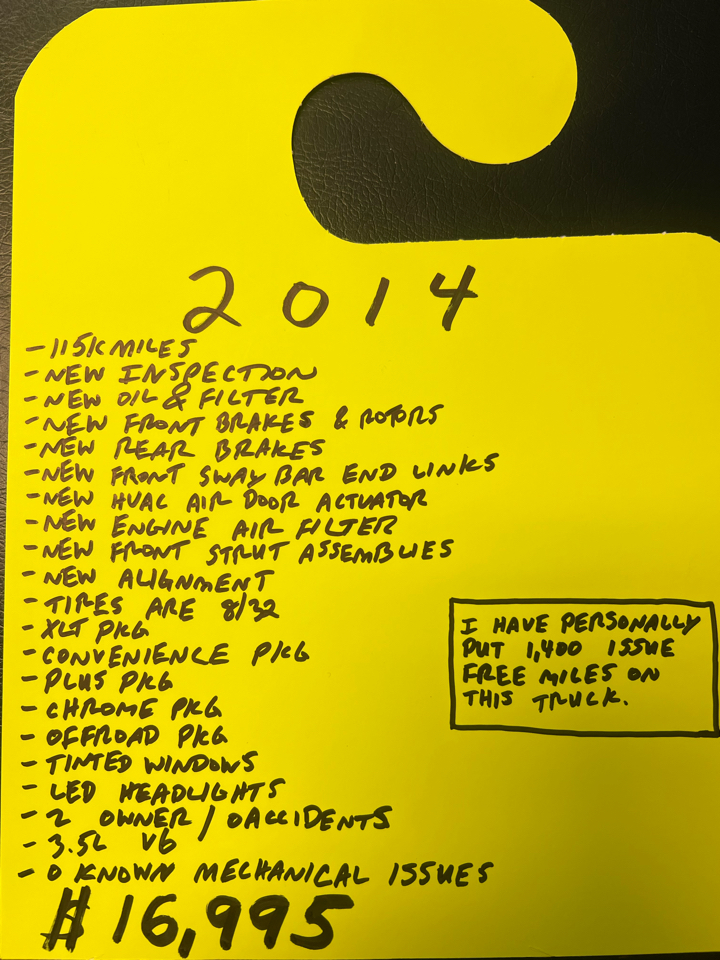 2014
- 115K MILES
- NEW INSPECTION
- NEW OIL & FILTER
- NEW FRONT BRAKES & ROTORS
- NEW REAR BRAKES
- NEW FRONT SWAY BAR END LINKS
- NEW HVAC AIR DOOR ACTUATOR
- NEW ENGINE AIR FILTER
- NEW FRONT STRUT ASSEMBLIES
- NEW ALIGNMENT
- TIRES ARE 8/32
- XLT PKG
- CONVENIENCE PKG
- PLUS PKG
- CHROME PKG
- OFFROAD PKG
- TINTED WINDOWS
- LED HEADLIGHTS
- 2 OWNER / 0 ACCIDENTS
- 3.5L V6
- 0 KNOWN MECHANICAL ISSUES
$16,995
I HAVE PERSONALLY
PUT 1,400 ISSUE
FREE MILES ON
THIS TRUCK.